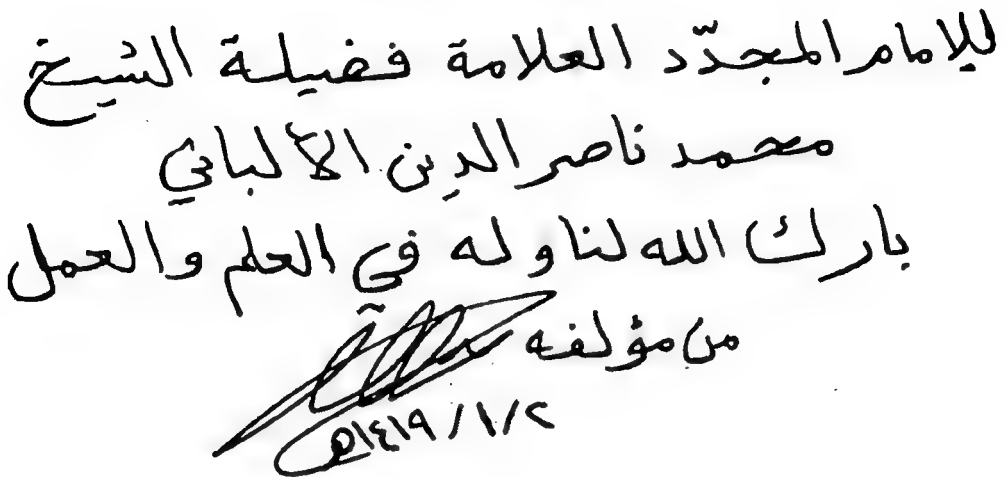 للإمام المجدّد العلامة فضيلة الشيخ
محمد ناصر الدين الألباني
بارك الله لنا وله في العلم والعمل
من مؤلفه
٢/١/١٤١٩هـ